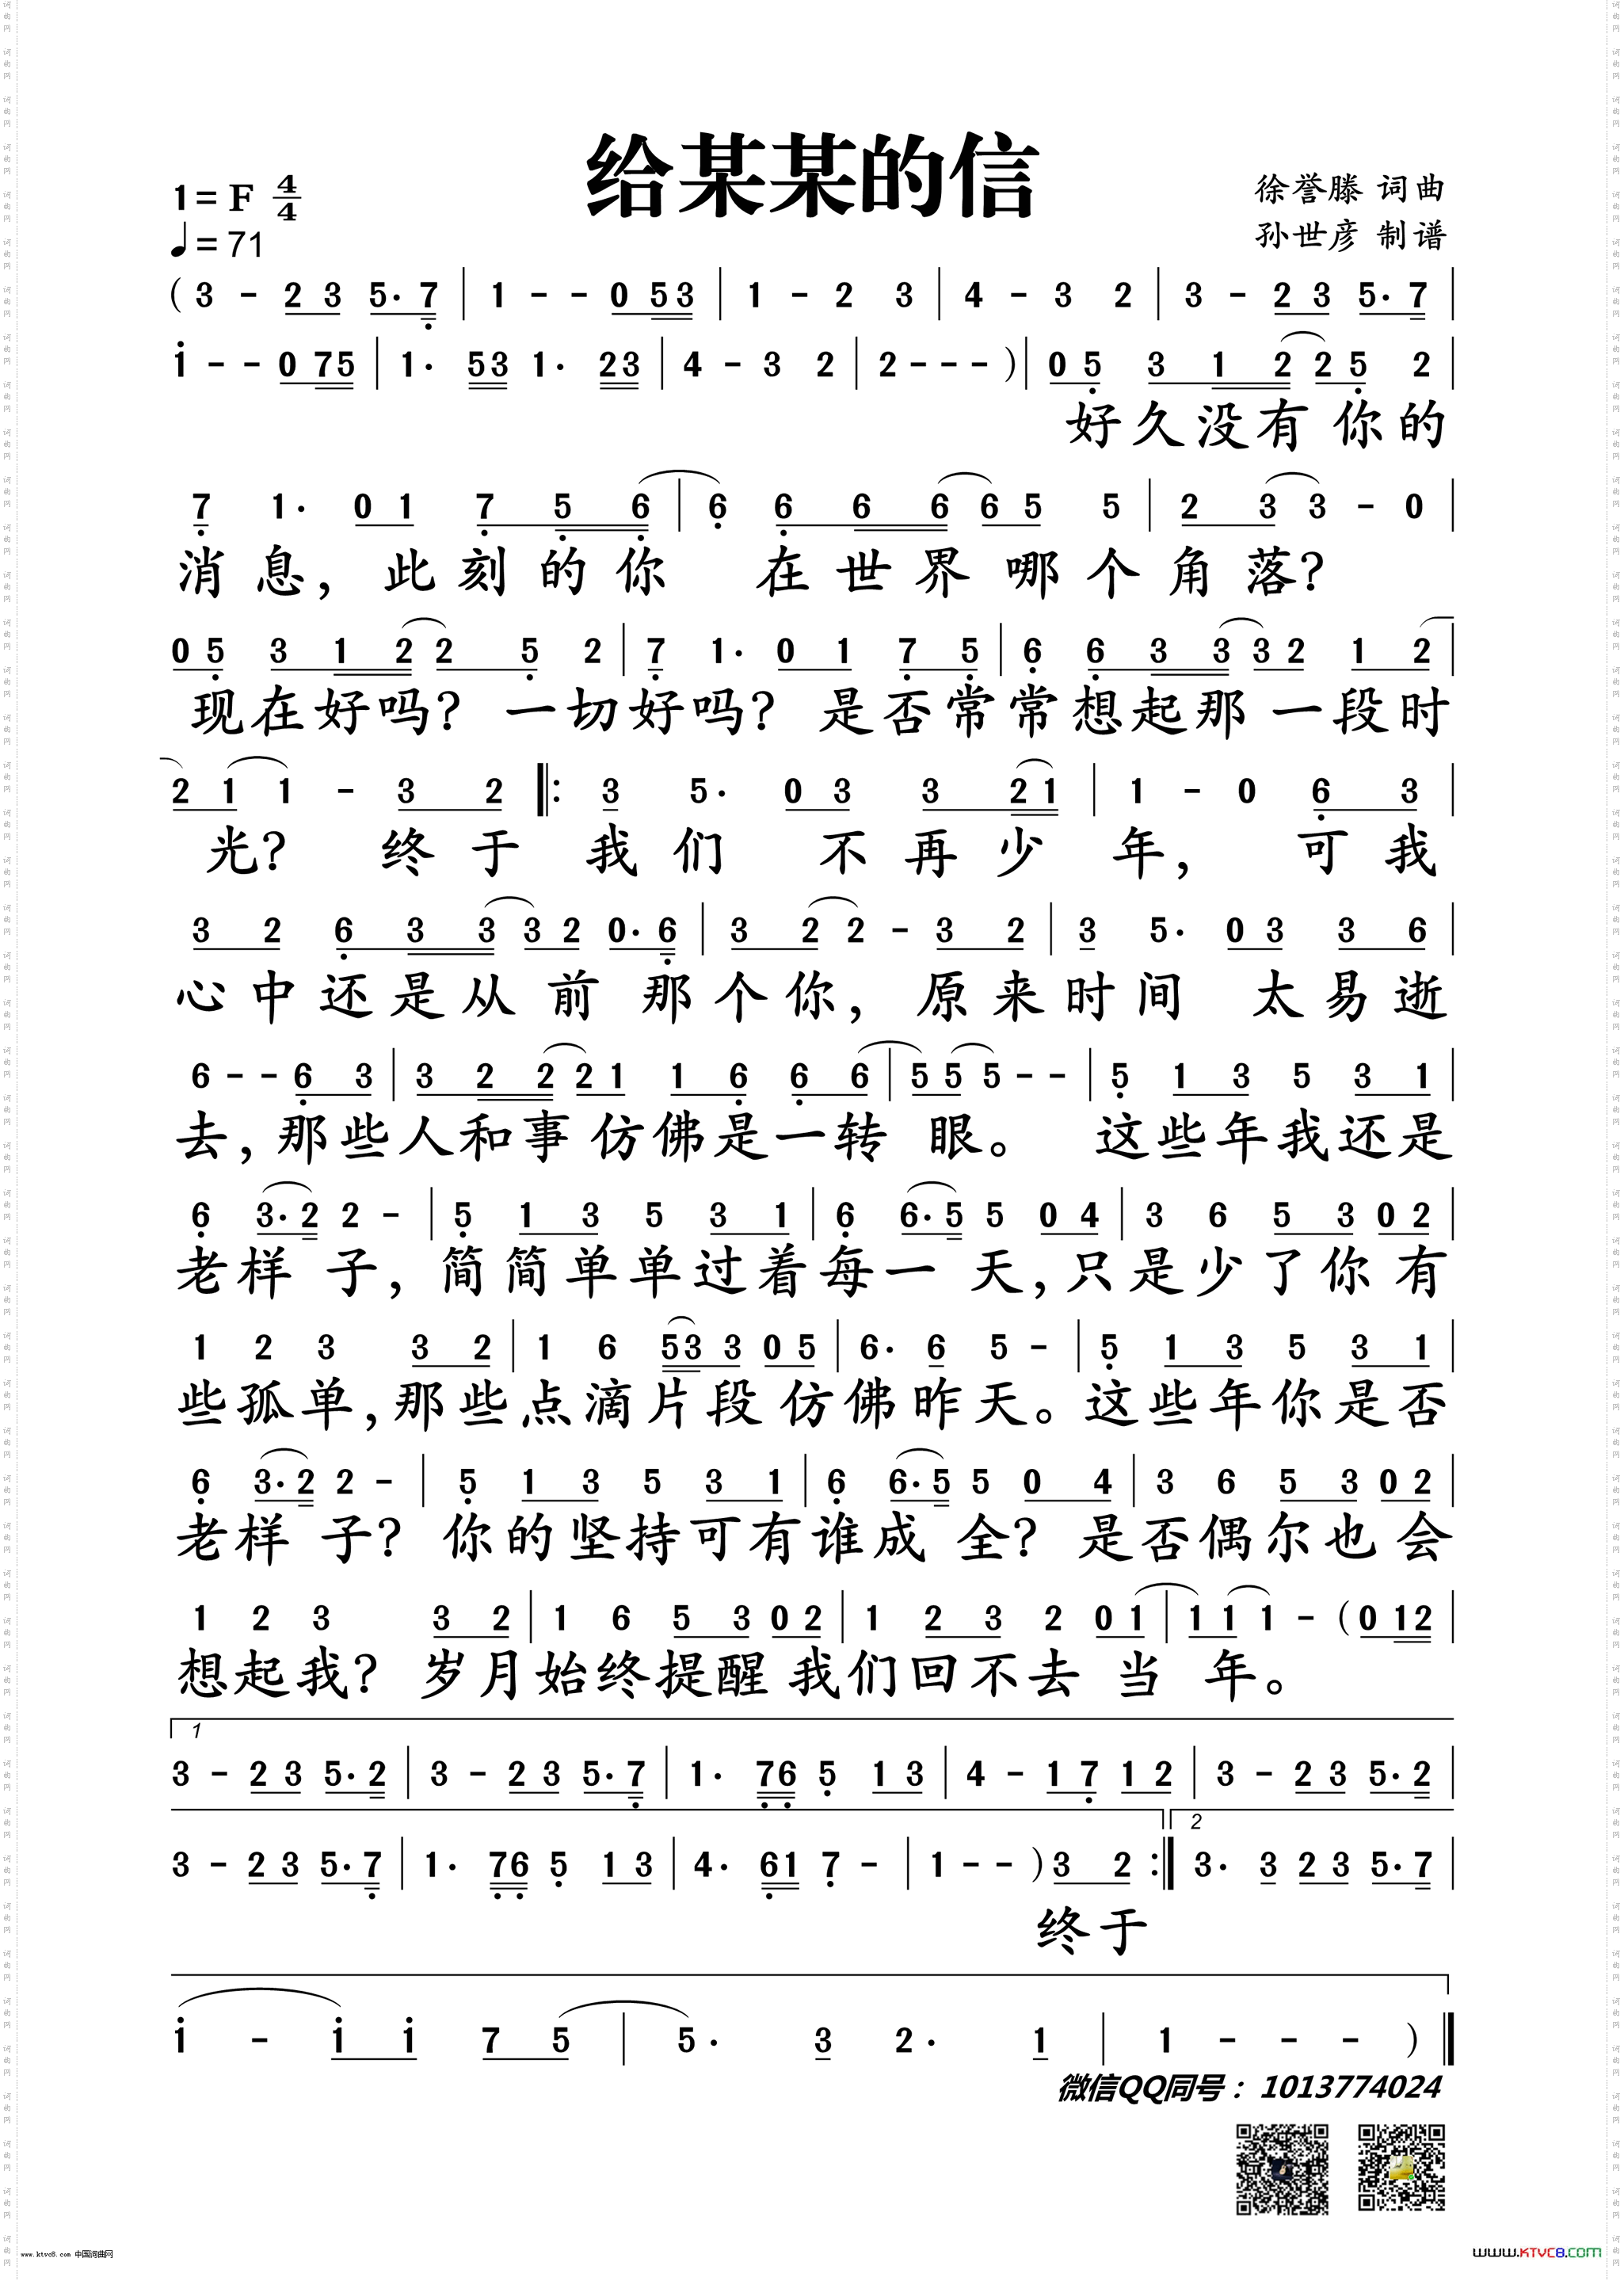 给某某的信
1= F 4/4
♩= 71
徐誉滕 词曲
孙世彦 制谱
( 3 - 2 3 5· 7 | 1 - - 0 5 3 | 1 - 2 3 | 4 - 3 2 | 3 - 2 3 5· 7 |
1 - - 0 7 5 | 1· 5 3 1· 2 3 | 4 - 3 2 | 2 - - - ) | 0 5 3 1 2 2 5 2 |
好久没有你的
7 1· 0 1 7 5 6 | 6 6 6 6 6 5 5 | 2 3 3 - 0 |
消息，此刻的你 在世界哪个角落？
0 5 3 1 2 2 5 2 | 7 1· 0 1 7 5 | 6 6 3 3 3 2 1 2 |
现在好吗？一切好吗？是否常常想起那一段时
2 1 1 - 3 2 ‖: 3 5· 0 3 3 2 1 | 1 - 0 6 3 |
光？ 终于 我们 不再少年， 可我
3 2 6 3 3 3 2 0· 6 | 3 2 2 - 3 2 | 3 5· 0 3 3 6 |
心中还是从前那个你，原来时间 太易逝
6 - - 6 3 | 3 2 2 2 1 1 6 6 6 | 5 5 5 - - | 5 1 3 5 3 1 |
去，那些人和事仿佛是一转眼。 这些年我还是
6 3· 2 2 - | 5 1 3 5 3 1 | 6 6· 5 5 0 4 | 3 6 5 3 0 2 |
老样子，简简单单过着每一天，只是少了你有
1 2 3 3 2 | 1 6 5 3 3 0 5 | 6· 6 5 - | 5 1 3 5 3 1 |
些孤单，那些点滴片段仿佛昨天。这些年你是否
6 3· 2 2 - | 5 1 3 5 3 1 | 6 6· 5 5 0 4 | 3 6 5 3 0 2 |
老样子？你的坚持可有谁成全？是否偶尔也会
1 2 3 3 2 | 1 6 5 3 0 2 | 1 2 3 2 0 1 | 1 1 1 - ( 0 1 2 |
想起我？岁月始终提醒我们回不去当年。
1
3 - 2 3 5· 2 | 3 - 2 3 5· 7 | 1· 7 6 5 1 3 | 4 - 1 7 1 2 | 3 - 2 3 5· 2 |
2
3 - 2 3 5· 7 | 1· 7 6 5 1 3 | 4· 6 1 7 - | 1 - - ) 3 2 :‖ 3· 3 2 3 5· 7 |
终于
1 - 1 1 7 5 | 5· 3 2· 1 | 1 - - - ) ‖
微信QQ同号：1013774024
www.ktvc8.com 中国词曲网
WWW.KTVC8.COM